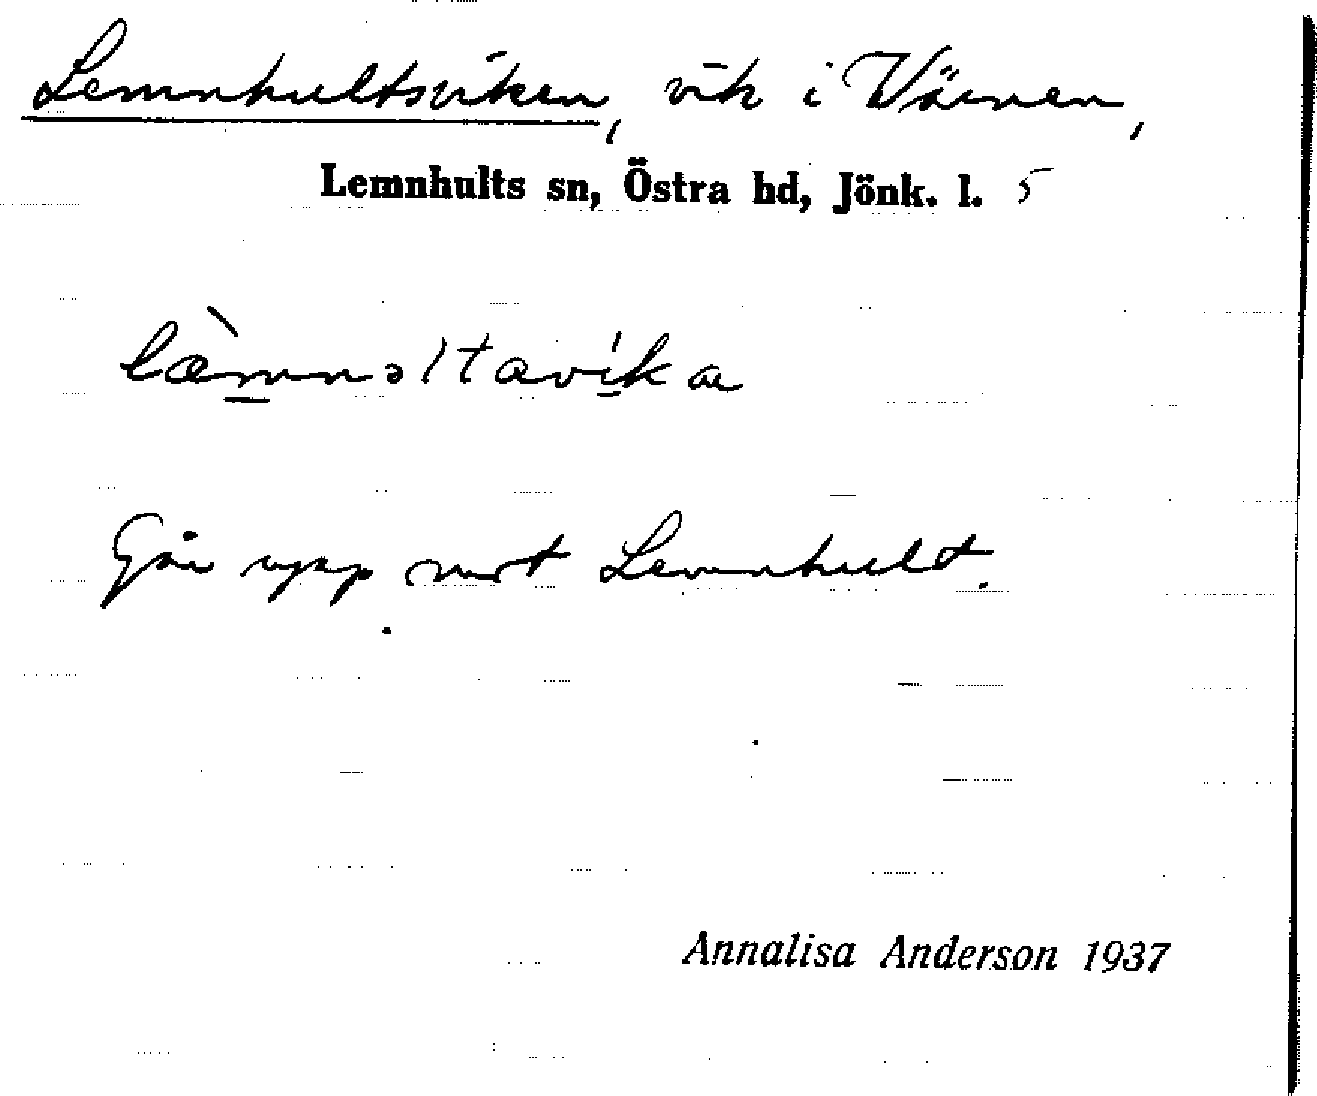 Lemnhultsviken, vik i Värnen,
Lemnhults sn, Östra hd, Jönk. l. 5
læ̀mnəltavíka
Går upp mot Lemnhult.
Annalisa Anderson 1937